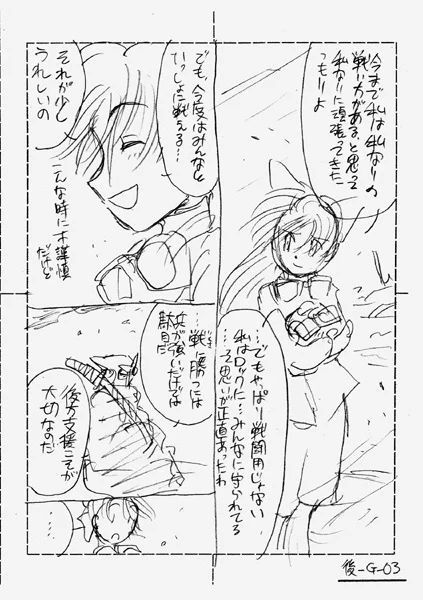 今まで私は私なりの
戦い方がある、と思って
私なりに頑張ってきた
つもりよ
…でもやっぱり戦闘用じゃない
私はロックに…みんなに守られてる
…って思いが正直あったわ
でも、今度はみんなと
いっしょに戦える…
それが少し
うれしいの
こんな時に不謹慎
だけど
…戦に勝つには
兵が強いだけでは
駄目だ
後方支援こそが
大切なのだ
…
後-G-03